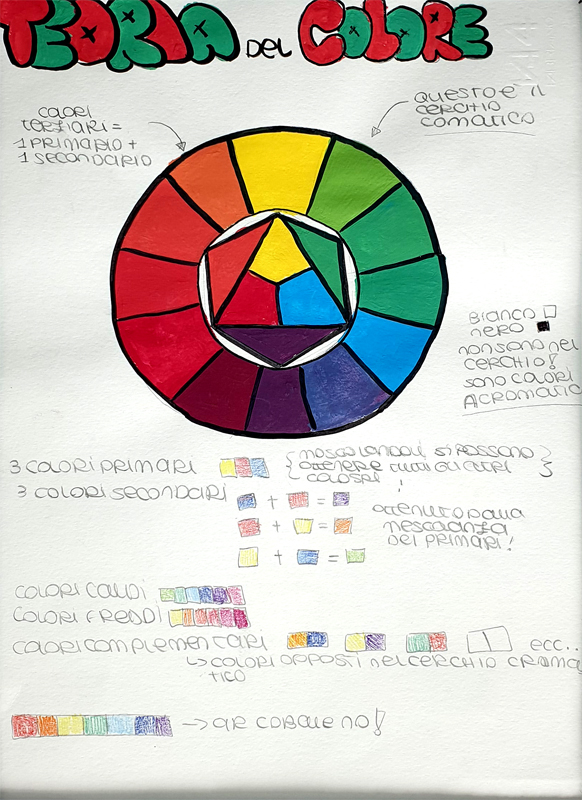 TEORIA DEL COLORE
COLORI
TERZIARI =
1 PRIMARIO +
1 SECONDARIO
QUESTO E' il
CERCHIO
COMATICO
BIANCO
NERO
NON SONO NEL
CERCHIO!
SONO COLORI
ACROMATIC
3 COLORI PRIMARI
MESCOLANDOLI SI POSSONO
OTTENERE TUTTI GLI ALTRI
3 COLORI SECONDARI
+ =
+ =
+ =
OTTENUTO DALLA
DEI PRIMARI!
COLORI CALDI
COLORI FREDDI
COLORI COMPLEMENTARI ecc..
↳ COLORI OPPOSTI NEL CERCHIO CROMA
TICO
→ ARCOBALENO!